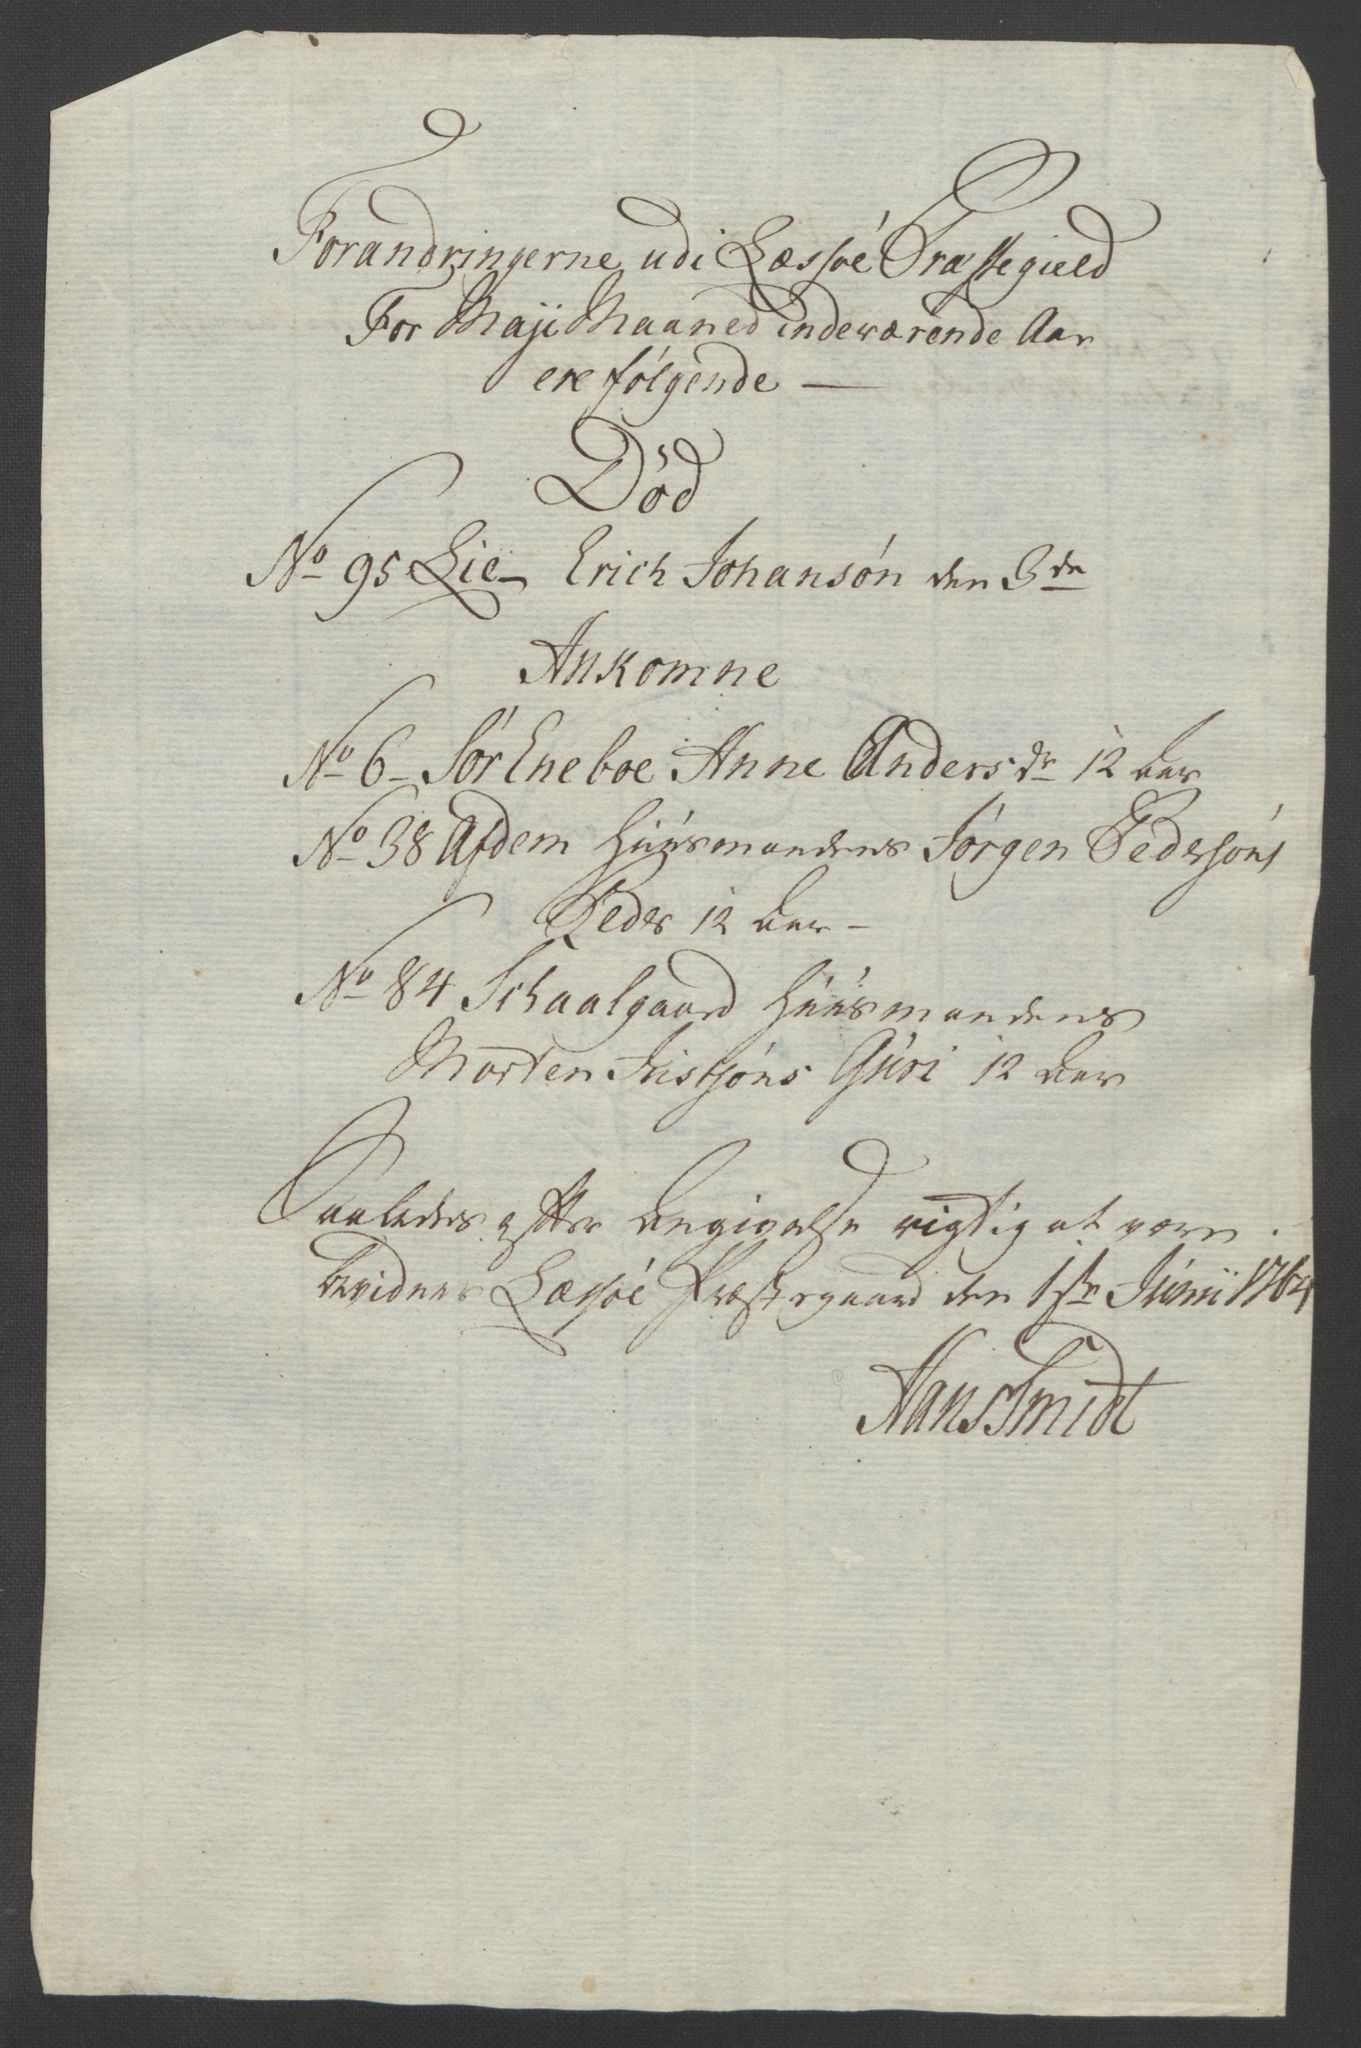 Forandringerne udi Læssøe Præstegield
For Maji Maaned indeværende Aar
ere følgende —
Død
No 95 Lie - Erich Johansøn den 3de
Ankomne
No 6 - Sør Eneboe Anne Andersdr 12 Aar
No 38 Afdem Huusmandens Jørgen Pedersøns
Peder 12 Aar -
No 84 Schaalgaard Huusmandens
Morten Distens Guri 12 Aar
Saaledes efter Angivelse rigtig at være
Avidner Læssøe Præstegaard den 1ste Junii 1764
Hans Smidt